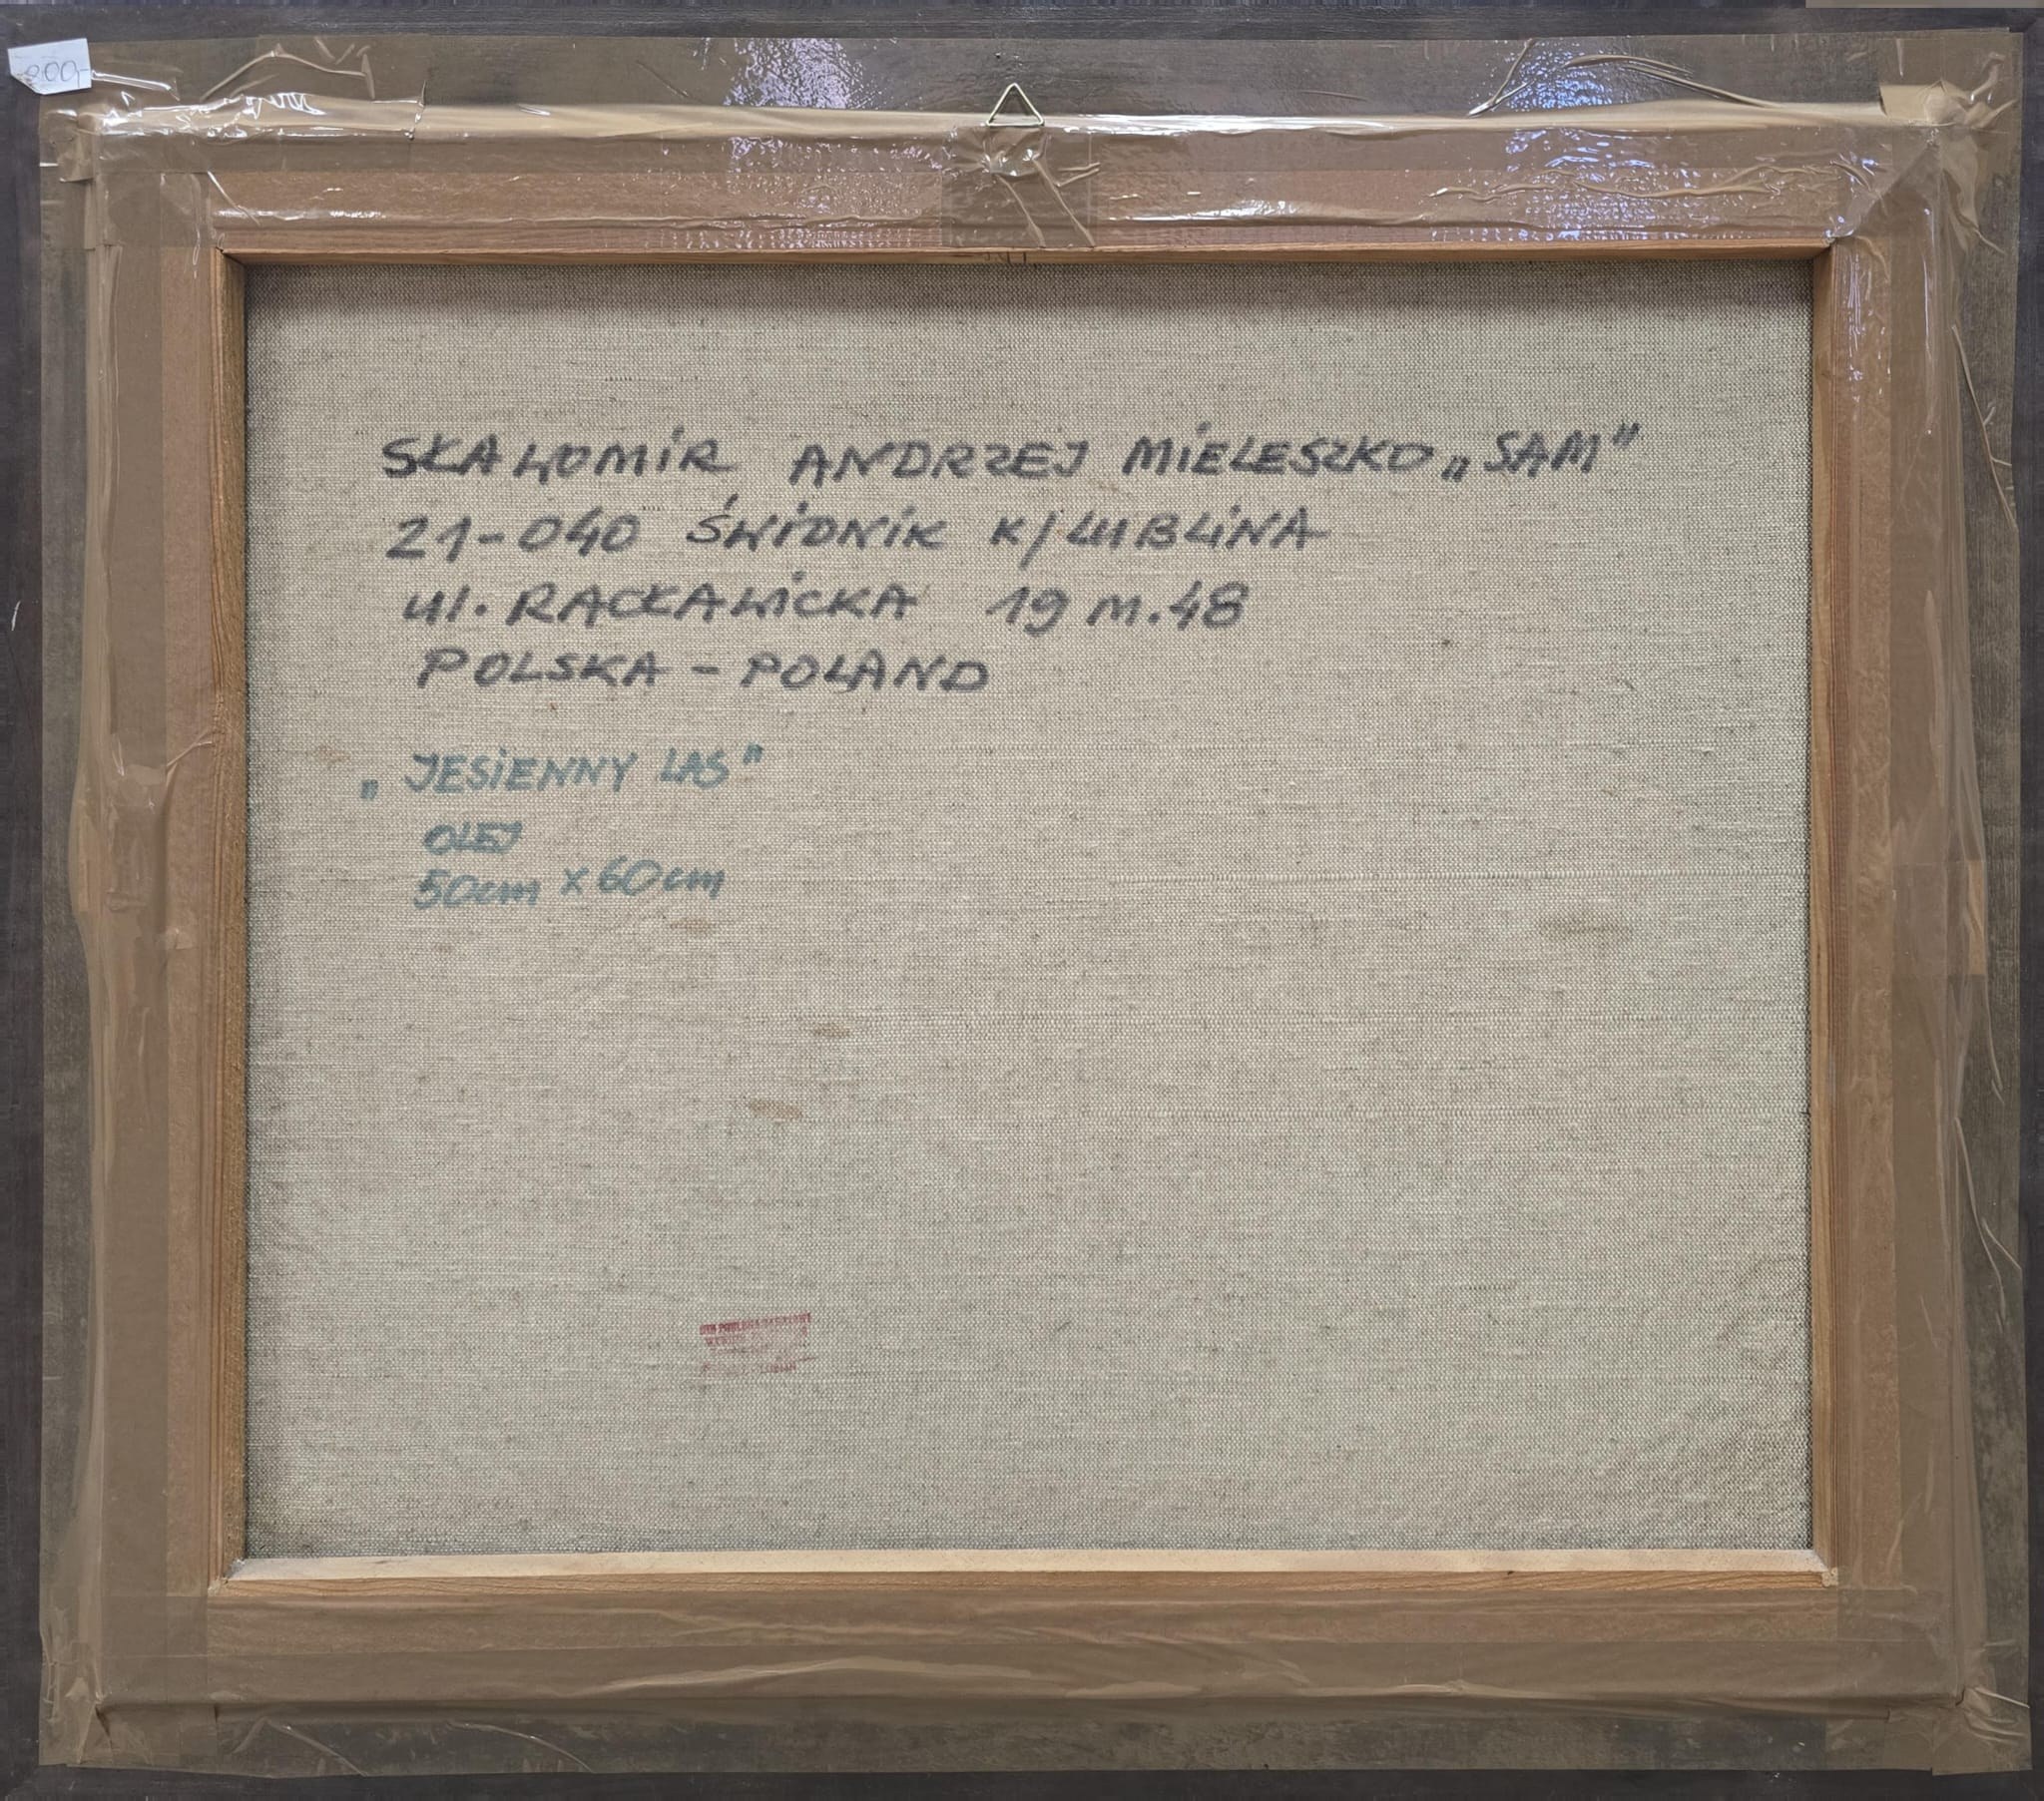 200,-
SŁAWOMiR ANDRZEJ MiELESZKO „SAM"
21-040 ŚWiDNiK K/LUBLiNA
ul. RACŁAWiCKA 19 m.48
POLSKA - POLAND
„JESiENNY LAS"
OLEJ
50cm x 60cm